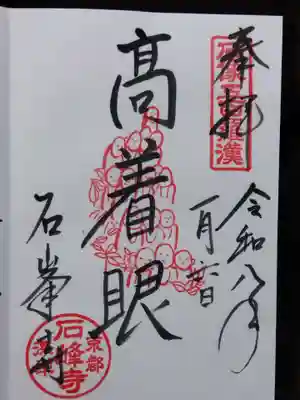 奉拝
五百羅漢
令和八年
一月
日
髙着眼
石峯寺
京都
石峰寺
深草